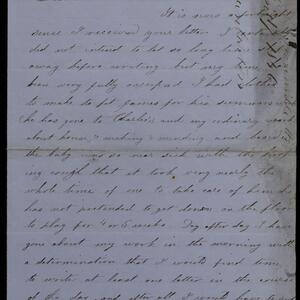 It is now a fortnight
since I received your letter. I certainly
did not intend to let so long time
away before writing but my time has
been very fully occupied I had clothes
to make to fit James for his summer
he has gone to Charlie's and my ordinary work
about house, making & mending, and
the baby was so near sick with the hooping
cough that it took very nearly the
whole time of one to take care of him he
has not pretended to get down on the floor
to play for 4 or 5 weeks. Day after day I have
gone about my work in the morning with
a determination that I would find time
to write at least one letter in the course
of the day, and after all I